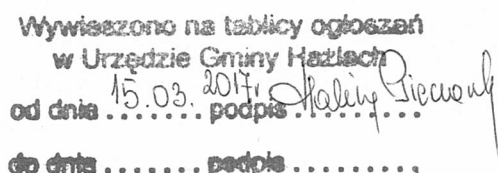 Wywieszono na tablicy ogłoszeń
w Urzędzie Gminy Hażlach
od dnia 15.03.2017r. podpis Halina
do dnia ....... podpis .........